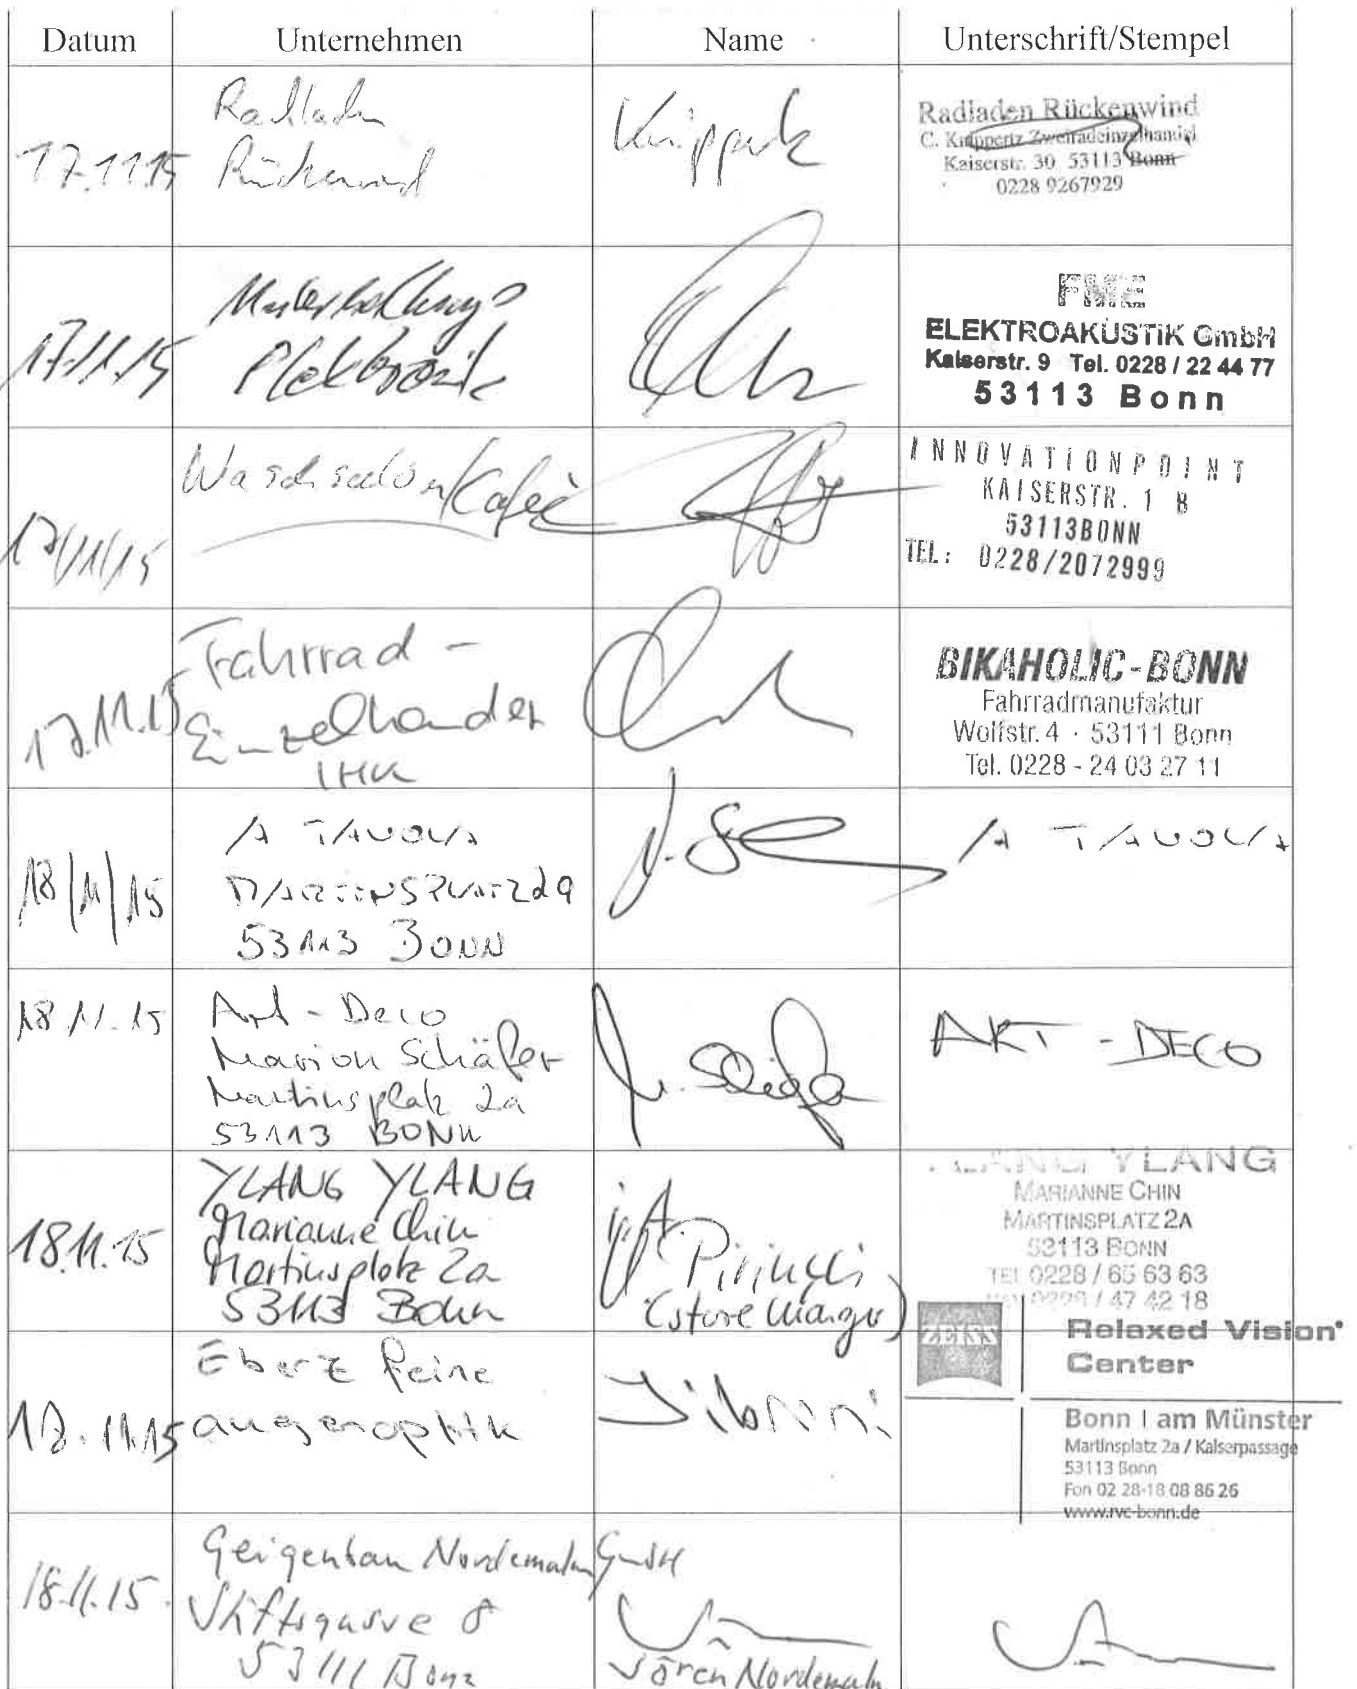 Datum Unternehmen Name Unterschrift/Stempel
17.11.15
Radladen
Rückenwind
Radladen Rückenwind
C. Knippertz Zweiradeinzelhandel
Kaiserstr. 30 53113 Bonn
0228 9267929
17.11.15
Unterhaltungs
elektronik
FME
ELEKTROAKUSTIK GmbH
Kaiserstr. 9 Tel. 0228 / 22 44 77
53113 Bonn
17/11/15
Waschsalon/Cafe
INNOVATIONPOINT
KAISERSTR. 1 B
53113BONN
TEL: 0228/2072999
17.11.15
Fahrrad-
Einzelhandel
IHK
BIKAHOLIC-BONN
Fahrradmanufaktur
Wolfstr. 4 · 53111 Bonn
Tel. 0228 - 24 03 27 11
18/11/15
A TAVOLA
MARTINSPLATZ 2a
53113 BONN
A TAVOLA
18.11.15
Art-Deco
Marion Schäfer
Martinsplatz 2a
53113 BONN
M. Schäfer
ART-DECO
18.11.15
YLANG YLANG
Marianne Chin
Martinsplatz 2a
53113 Bonn
YLANG YLANG
MARIANNE CHIN
MARTINSPLATZ 2A
53113 BONN
TEL 0228 / 65 63 63
FAX 0228 / 47 42 18
18.11.15
Ebertz feine
augenoptik
ZEISS
Relaxed Vision
Center
Bonn | am Münster
Martinsplatz 2a / Kaiserpassage
53113 Bonn
Fon 02 28-18 08 86 26
www.rvc-bonn.de
18.11.15.
Geigenbau Nordemann GmbH
Stiftsgasse 8
53111 Bonn
Sören Nordemann